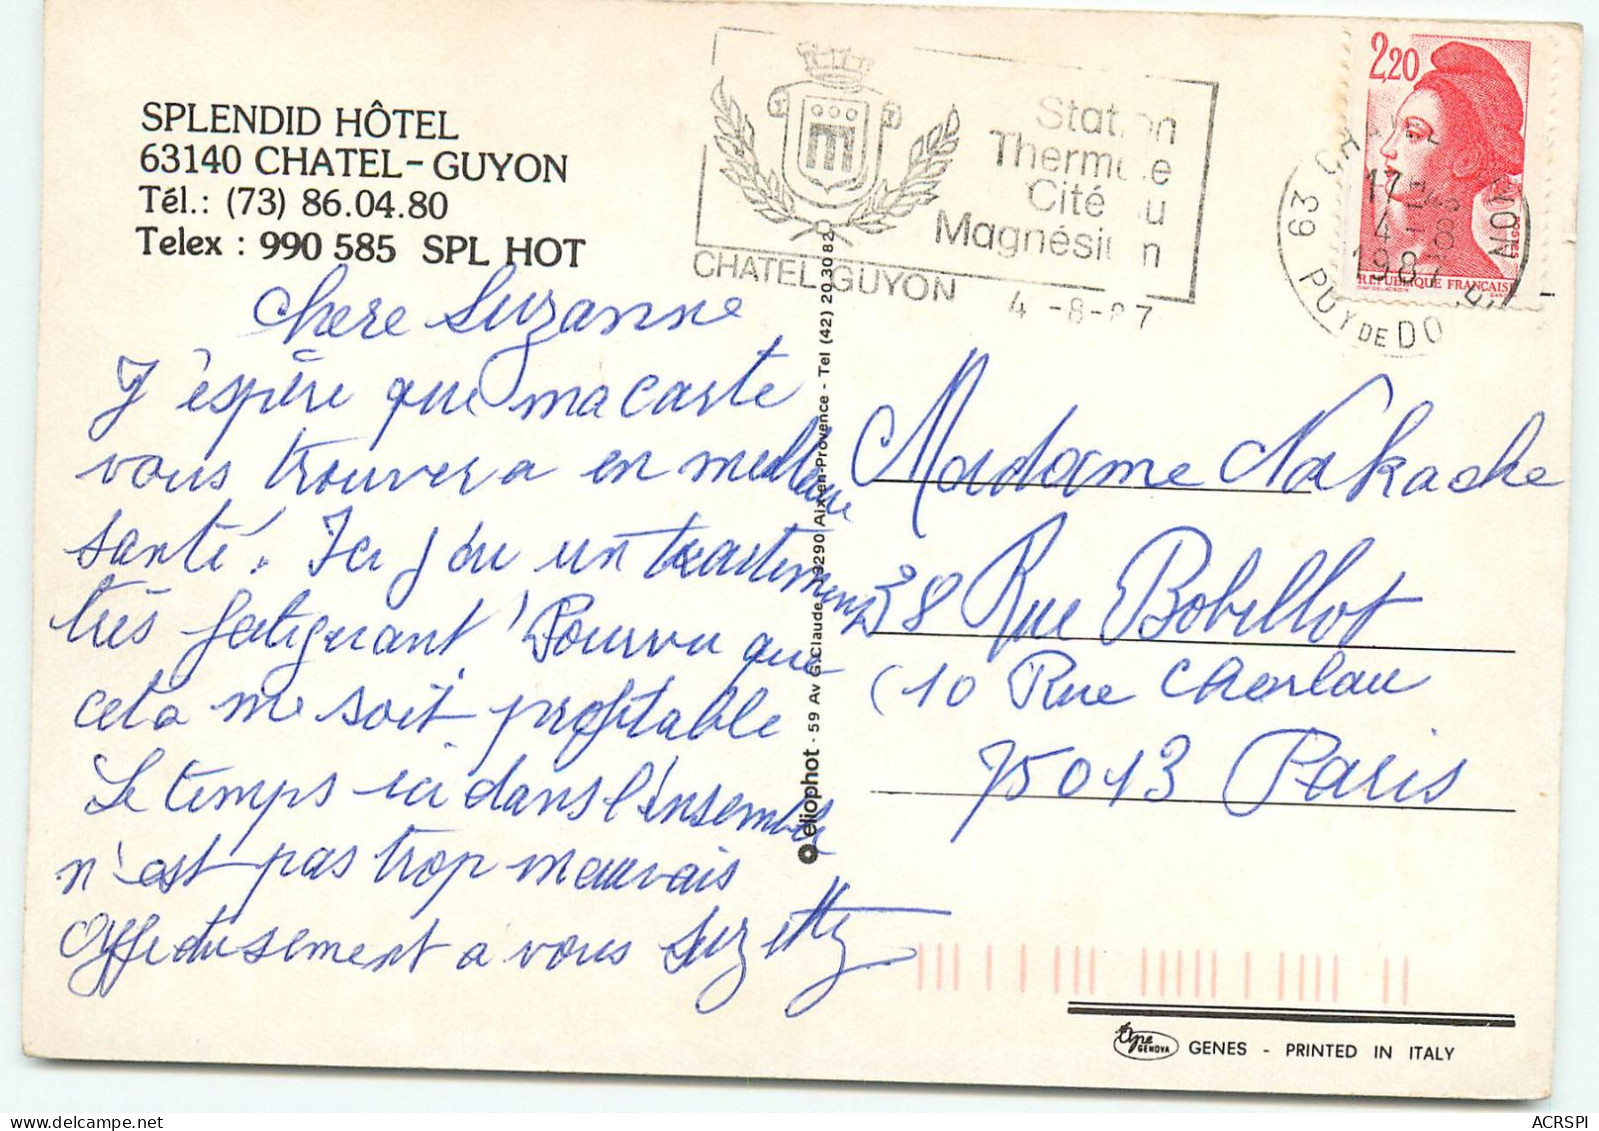 SPLENDID HÔTEL
63140 CHATEL-GUYON
Tél.: (73) 86.04.80
Telex : 990 585 SPL HOT
Station
Thermale
Cité du
Magnésium
CHATEL GUYON
4 -8-87
2,20
RÉPUBLIQUE FRANÇAISE
17H
4-8
1987
29 PUY DE DO
chere Suzanne
J'espère que ma carte
vous trouvera en meilleure
santé. Ici j'ai un traitement
très fatiguant ! Pourvu que
cela me soit profitable
Le temps ici dans l'ensemble
n'est pas trop mauvais
Affectueusement a vous Suzette
Madame Nakache
38 Rue Bobillot
(10 Rue Charlau
75013 Paris
eliophot - 59 Av G.Claude 13290 Aix-en-Provence - Tel (42) 20.30.82
GENOVA
GENES - PRINTED IN ITALY
ACRSPI